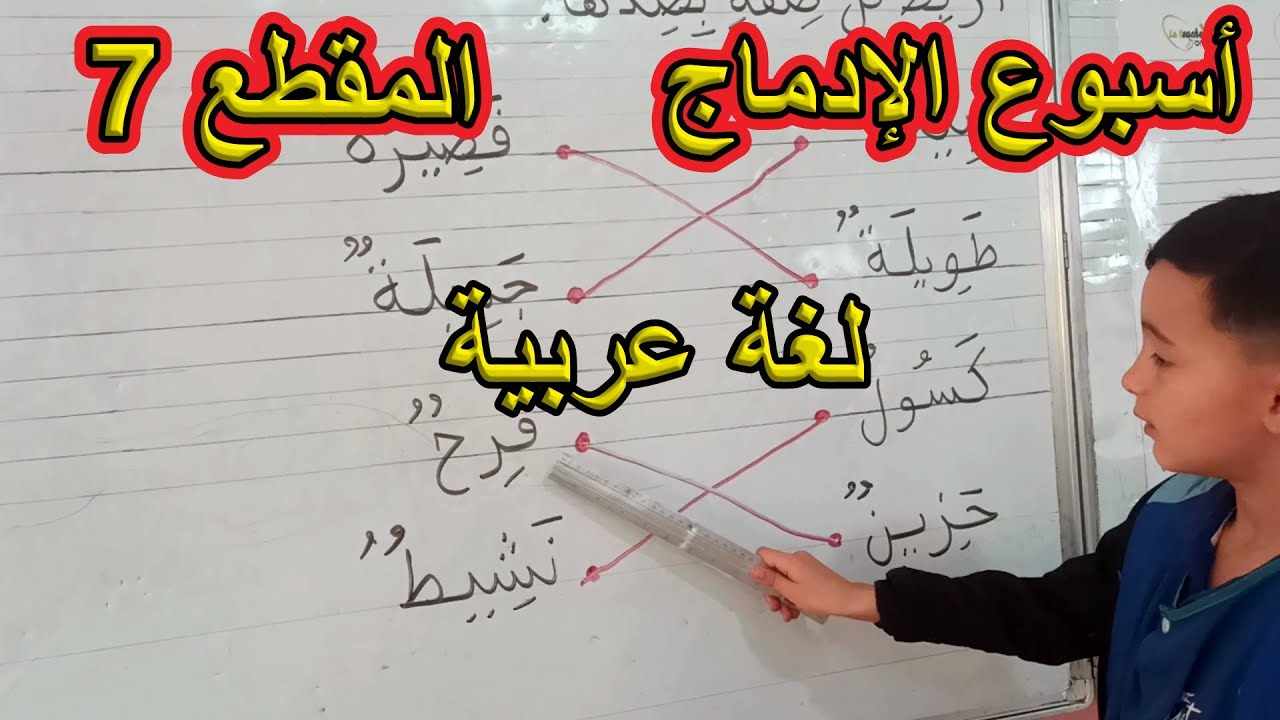 أربط كل صفة بضدها.
أسبوع الإدماج المقطع 7
قَصِيرَة
طَوِيلَةٌ جَمِيلَةٌ
لغة عربية
كَسُولٌ فَرِحٌ
حَزِينٌ نَشِيطٌ